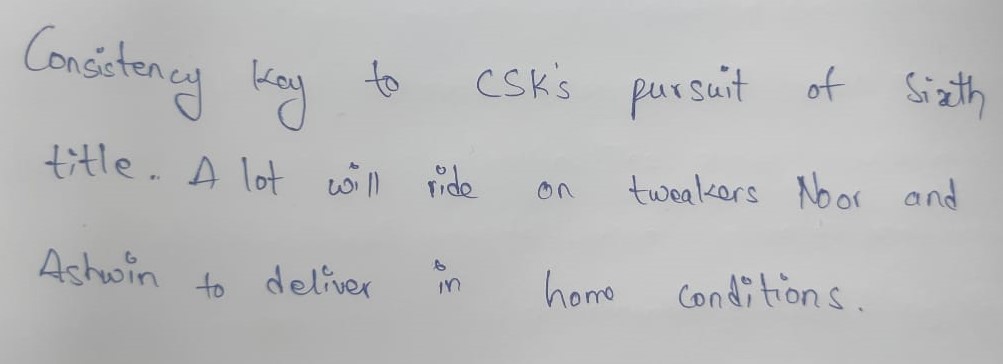 Consistency key to CSK's pursuit of sixth
title. A lot will ride on tweakers Noor and
Ashwin to deliver in home conditions.